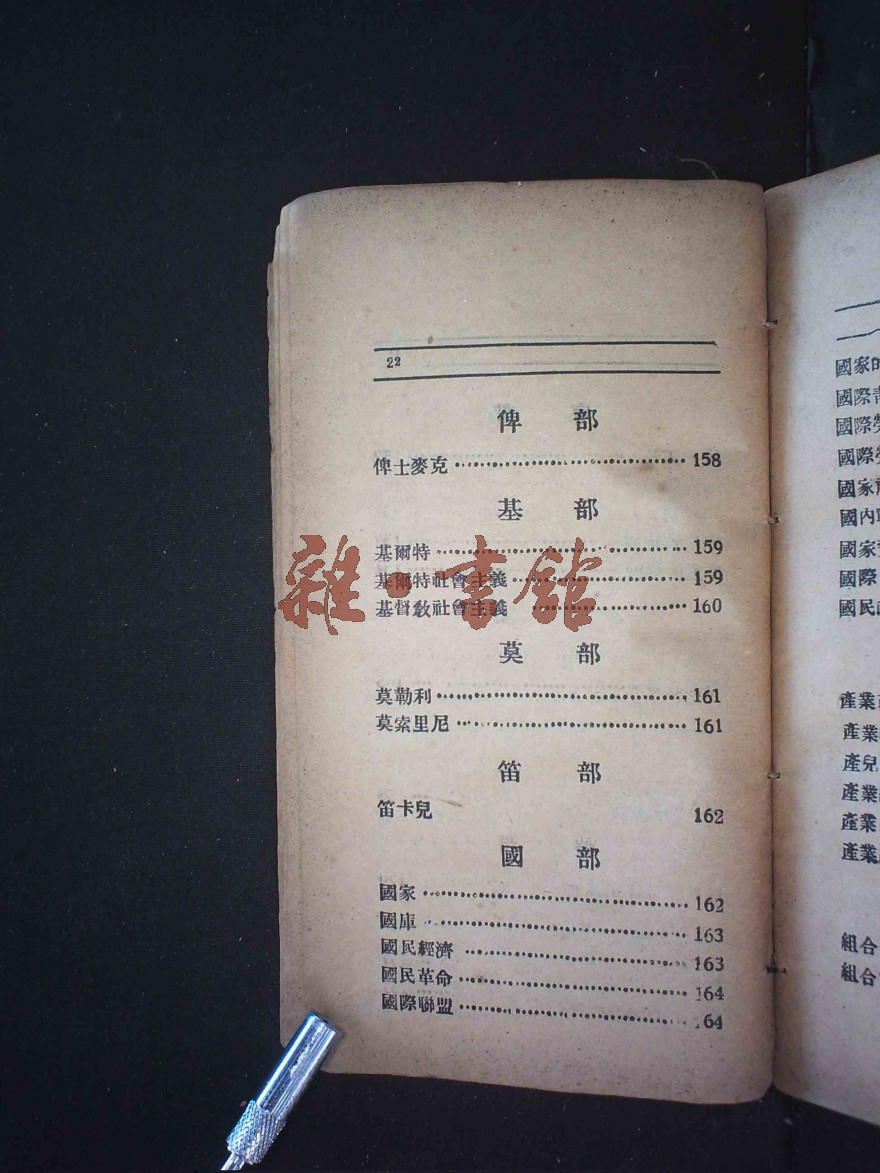 22
俾 部
俾士麥克 158
基 部
基爾特 159
基爾特社會主義 159
基督敎社會主義 160
莫 部
莫勒利 161
莫索里尼 161
笛 部
笛卡兒 162
國 部
國家 162
國庫 163
國民經濟 163
國民革命 164
國際聯盟 164
雜·書館
國家的
國際
國際
國際
國家
國內
國家
國際
國民
產業
產業
產兒
產業
產業
產業
組合
組合